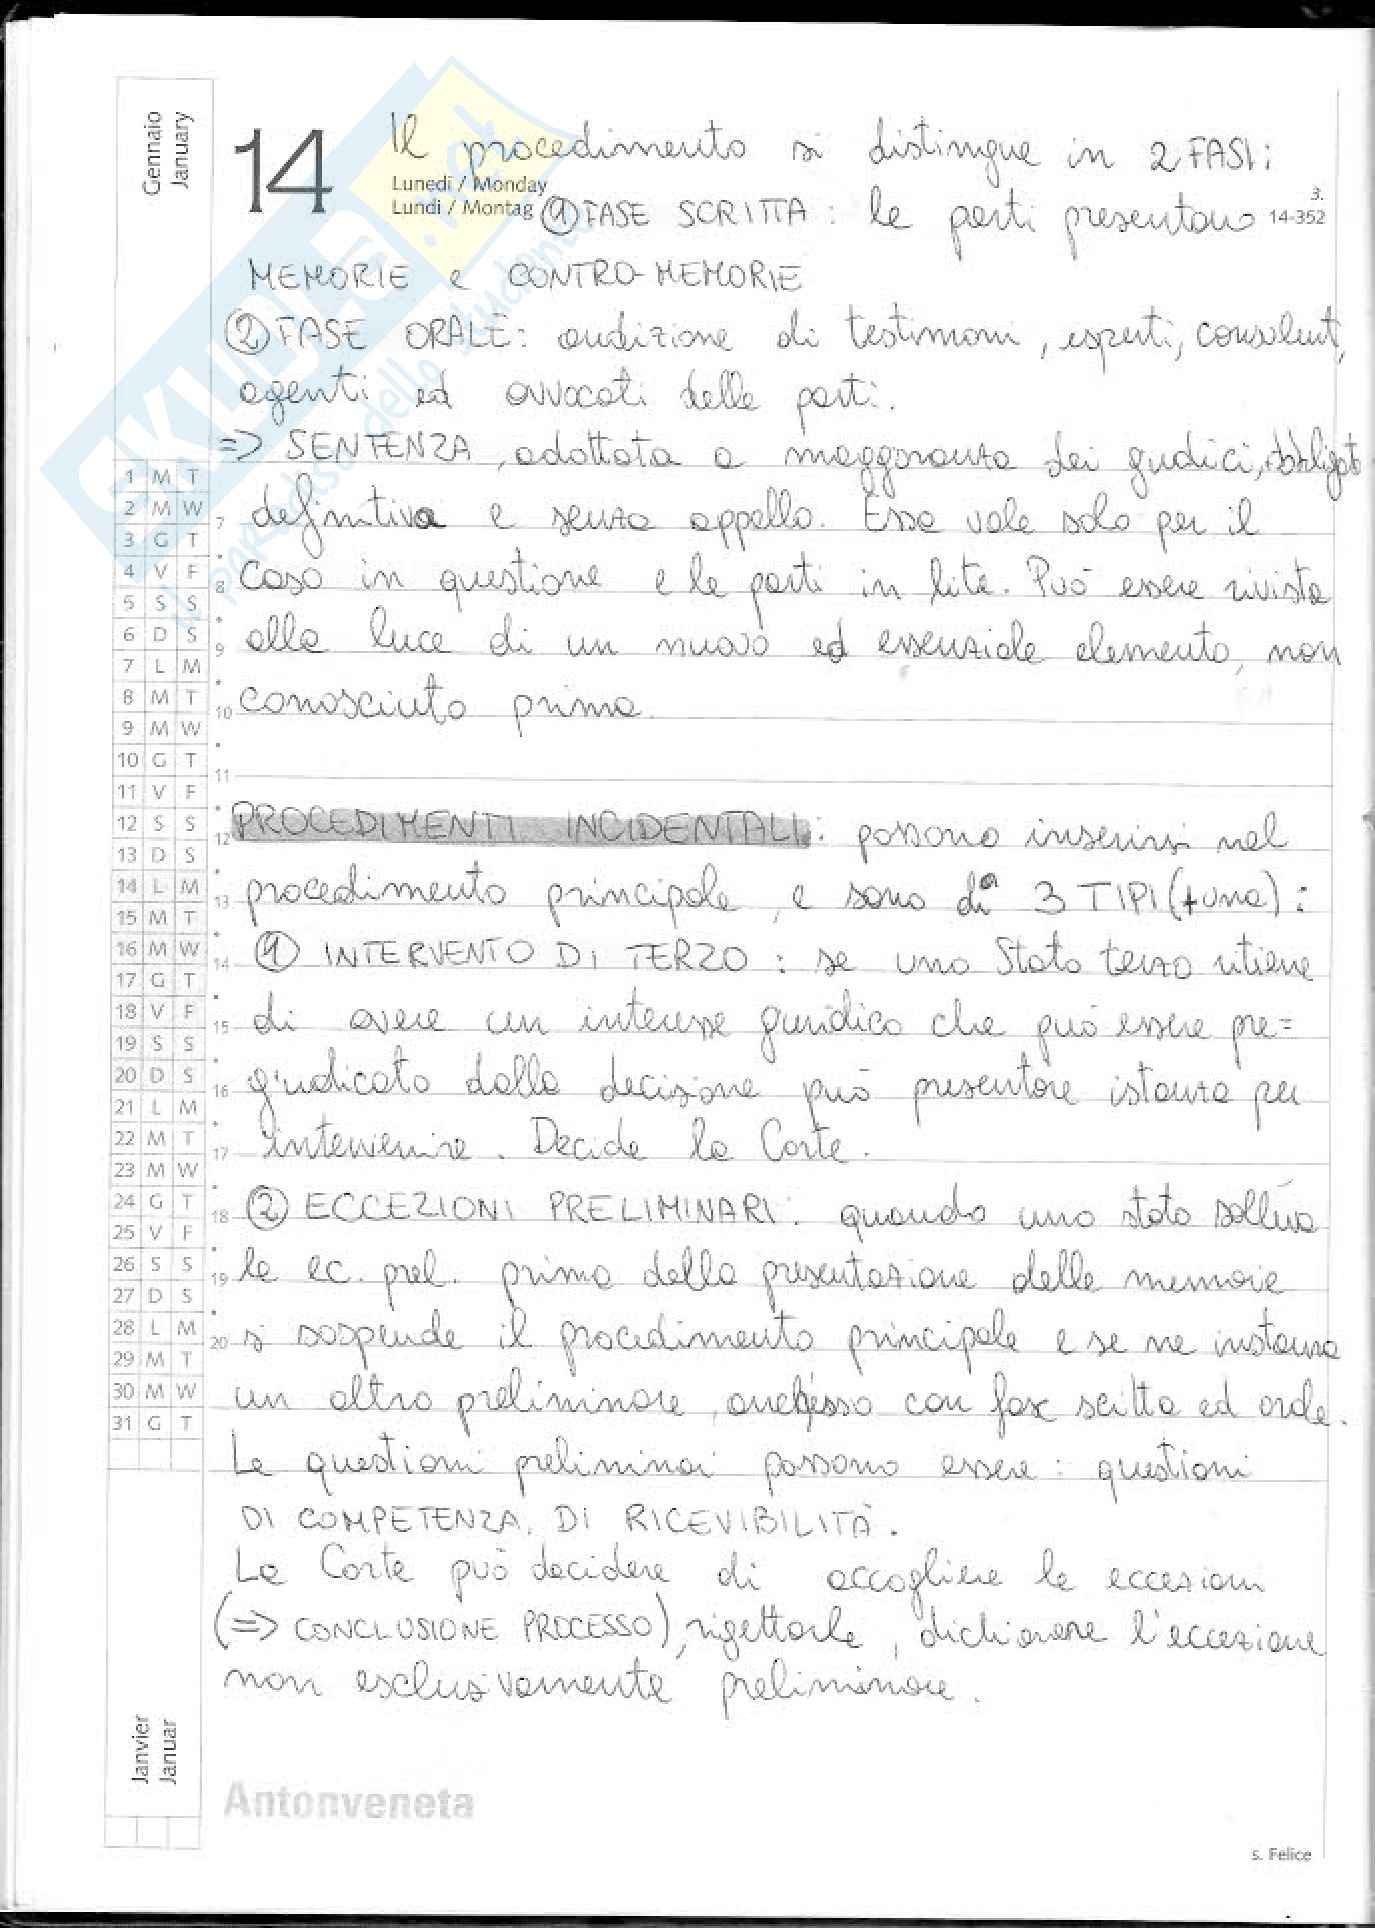 Gennaio
January
14
Lunedì / Monday
Lundi / Montag
3.
14-352
Il procedimento si distingue in 2 FASI:
① FASE SCRITTA: le parti presentano
MEMORIE e CONTRO-MEMORIE
② FASE ORALE: audizione di testimoni, esperti, consulenti,
agenti ed avvocati delle parti.
=> SENTENZA, adottata a maggioranza dei giudici, obbligat
definitiva e senza appello. Essa vale solo per il
caso in questione e le parti in lite. Può essere rivista
alla luce di un nuovo ed essenziale elemento, non
conosciuto prima.
PROCEDIMENTI INCIDENTALI: possono inserirsi nel
procedimento principale, e sono di 3 TIPI (+ una):
① INTERVENTO DI TERZO: se uno Stato terzo ritiene
di avere un interesse giuridico che può essere pre=
giudicato dalla decisione può presentare istanza per
intervenire. Decide la Corte.
② ECCEZIONI PRELIMINARI: quando uno stato solleva
le ec. prel. prima della presentazione delle memorie
si sospende il procedimento principale e se ne instaura
un altro preliminare, anch'esso con fase scritta ed orale.
Le questioni preliminari possono essere: questioni
DI COMPETENZA, DI RICEVIBILITÀ.
La Corte può decidere di accogliere le eccezioni
(=> CONCLUSIONE PROCESSO), rigettarle, dichiarare l'eccezione
non esclusivamente preliminare.
1 M T
2 M W
3 G T
4 V F
5 S S
6 D S
7 L M
8 M T
9 M W
10 G T
11 V F
12 S S
13 D S
14 L M
15 M T
16 M W
17 G T
18 V F
19 S S
20 D S
21 L M
22 M T
23 M W
24 G T
25 V F
26 S S
27 D S
28 L M
29 M T
30 M W
31 G T
7
8
9
10
11
12
13
14
15
16
17
18
19
20
Janvier
Januar
Antonveneta
s. Felice
SKUOLA.net
il paradiso dello studente